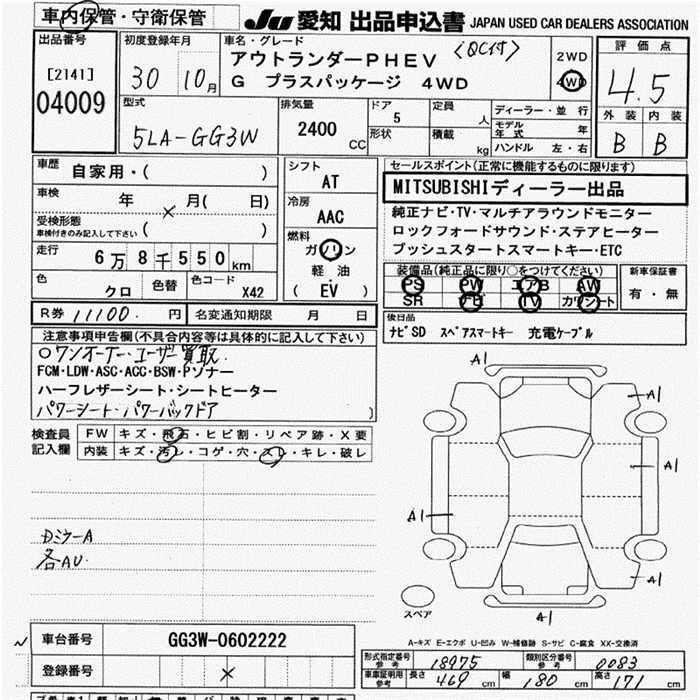 車内保管・守衛保管 JU 愛知 出品申込書 JAPAN USED CAR DEALERS ASSOCIATION
出品番号 初度登録年月 車名・グレード 評価点
[2141] 30 10月 アウトランダーPHEV <QC付> 2WD 4.5
04009 G プラスパッケージ 4WD 4WD
外装 内装
B B
型式 排気量 ドア 定員 ディーラー・並行
5LA-GG3W 2400 CC 5 人 モデル年式 年
形状 積載 kg ハンドル 左・右
車歴 自家用・( ) シフト セールスポイント(正常に機能するものに限ります)
AT MITSUBISHIディーラー出品
車検 年 × 月( 日) 冷房
AAC 純正ナビ・TV・マルチアラウンドモニター
受検形態 ロックフォードサウンド・ステアヒーター
車検付きのみ記入して下さい ( ) 燃料 プッシュスタートスマートキー・ETC
走行 6万8千550km ガソリン 装備品(純正品に限り○をつけてください) 新車保証書
軽油 PS PW エアB AW 有・無
色 クロ 色替 色コード X42 ( EV ) SR ナビ TV カワシート
R券 11100. 円 名変通知期限 月 日 後日品
ナビSD スペアスマートキー 充電ケーブル
注意事項申告欄(不具合内容等は具体的に記入して下さい)
○ワンオーナー・ユーザー買取.
FCM・LDW・ASC・ACC・BSW・Pソナー
ハーフレザーシート・シートヒーター
パワーシート・パワーバックドア )
A1
A1
A1
A1
A1
A1
検査員記入欄 FW キズ・飛石・ヒビ割・リペア跡・X要
内装 キズ・汚レ・コゲ・穴・スレ・キレ・破レ
DミラーA
各AU.
スペア
A-キズ E-エクボ U-凹み W-補修跡 S-サビ C-腐食 XX-交換済
車台番号 GG3W-0602222
形式指定番号 参考 18975 類別区分番号 参考 0083
登録番号 ×
車庫証明用 参考 長さ 469 cm 幅 180 cm 高さ 171 cm